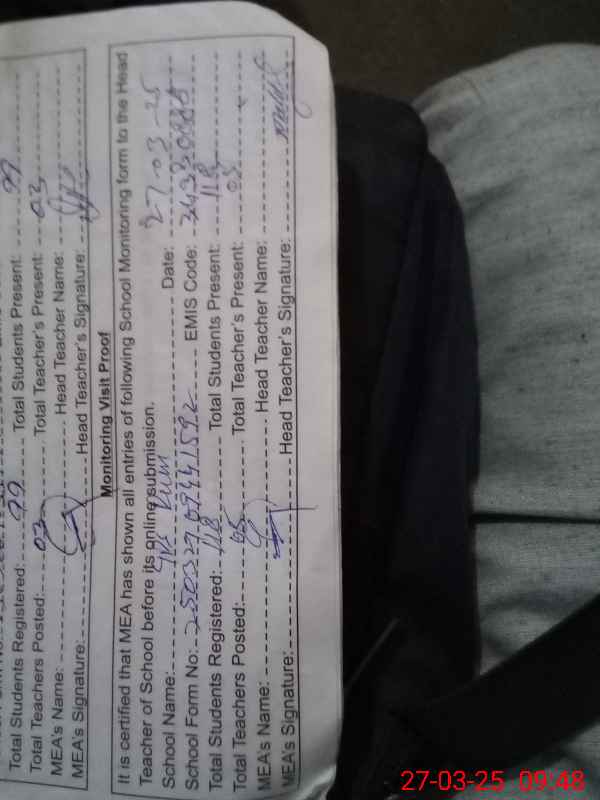 Total Students Registered: 99 Total Students Present: 99
Total Teachers Posted: 03 Total Teacher's Present: 03
MEA's Name: Head Teacher Name:
MEA's Signature: Head Teacher's Signature:
Monitoring Visit Proof
It is certified that MEA has shown all entries of following School Monitoring form to the Head
Teacher of School before its online submission.
School Name: Date: 27-03-25
School Form No: EMIS Code:
Total Students Registered: 118 Total Students Present: 118
Total Teachers Posted: 05 Total Teacher's Present: 05
MEA's Name: Head Teacher Name:
MEA's Signature: Head Teacher's Signature:
27-03-25 09:48